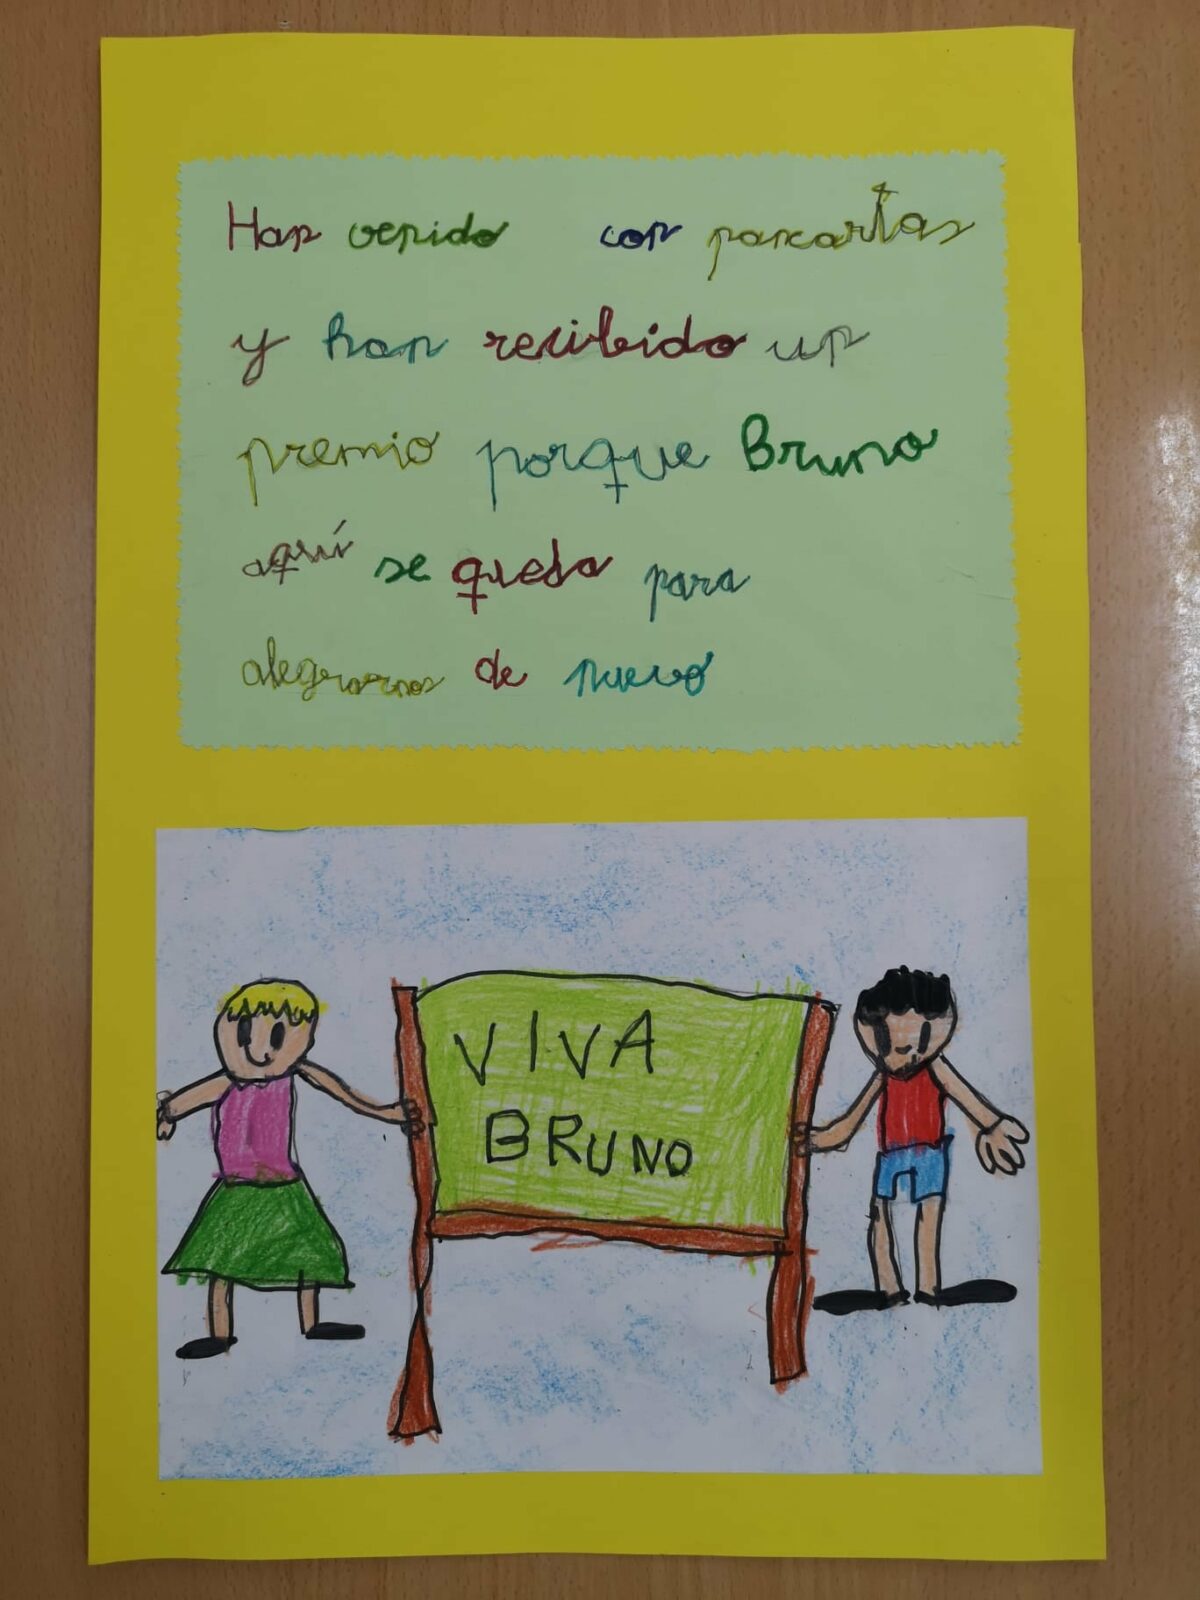 Han venido con pancartas
y han recibido un
premio porque Bruno
aquí se queda para
alegrarnos de nuevo
VIVA
BRUNO